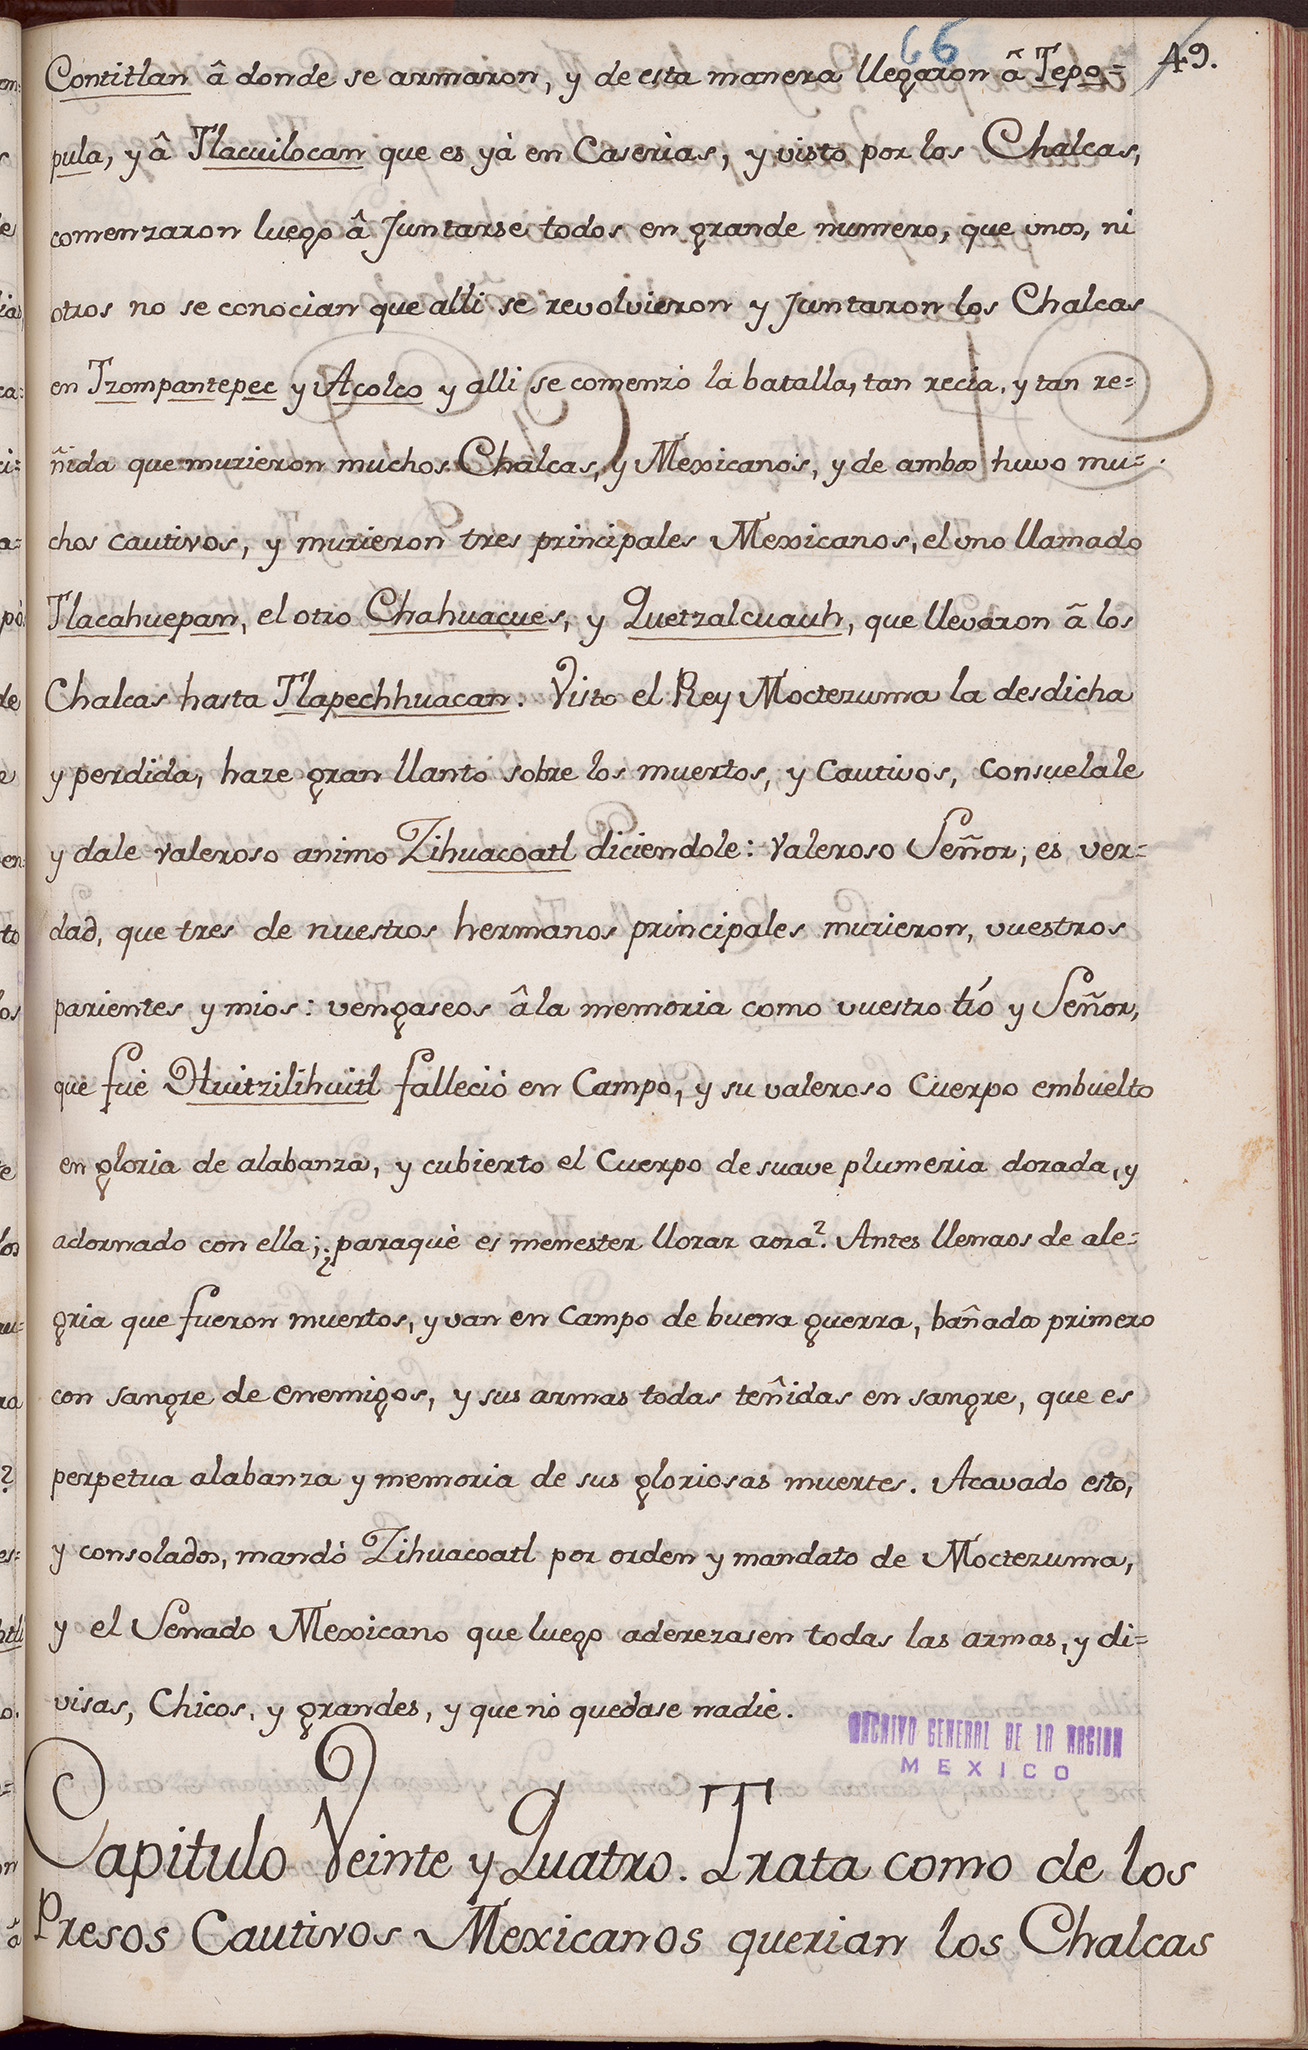 66
49.
Contitlan â donde se armaron, y de esta manera llegaron â Tepo=
pula, y â Tlacuilocan que es yà en Caserias, y visto por los Chalcas,
comenzaron luego â Juntarse todos en grande numero, que unos, ni
otros no se conocian que alli se revolvieron y Juntaron los Chalcas
en Tzompantepec y Acolco y alli se comenzò la batalla, tan recia, y tan re=
ñida que murieron muchos Chalcas, y Mexicanos, y de ambos huvo mu=
chos cautivos, y murieron tres principales Mexicanos, el uno llamado
Tlacahuepan, el otro Chahuacues, y Quetzalcuauh, que llevaron â los
Chalcas hasta Tlapechhuacan. Visto el Rey Moctezuma la desdicha
y perdida, haze gran llanto sobre los muertos, y Cautivos, consuelale
y dale valeroso animo Zihuacoatl diciendole: Valeroso Señor, es ver=
dad, que tres de nuestros hermanos principales murieron, vuestros
parientes y mios: vengaseos â la memoria como vuestro tío y Señor,
que fuè Huitzilihuitl falleciò en Campo, y su valeroso Cuerpo embuelto
en gloria de alabanza, y cubierto el Cuerpo de suave plumeria dorada, y
adornado con ella; ¿paraquè es menester llorar aora? Antes llenaos de ale=
gria que fueron muertos, y van en Campo de buena guerra, bañados primero
con sangre de enemigos, y sus armas todas teñidas en sangre, que es
perpetua alabanza y memoria de sus gloriosas muertes. Acavado esto,
y consolados, mandò Zihuacoatl por orden y mandato de Moctezuma,
y el Senado Mexicano que luego aderezasen todas las armas, y di=
visas, Chicos, y grandes, y que no quedase nadie.
ARCHIVO GENERAL DE LA NACION
MEXICO
Capitulo Veinte y Quatro. Trata como de los
Presos Cautivos Mexicanos querian los Chalcas